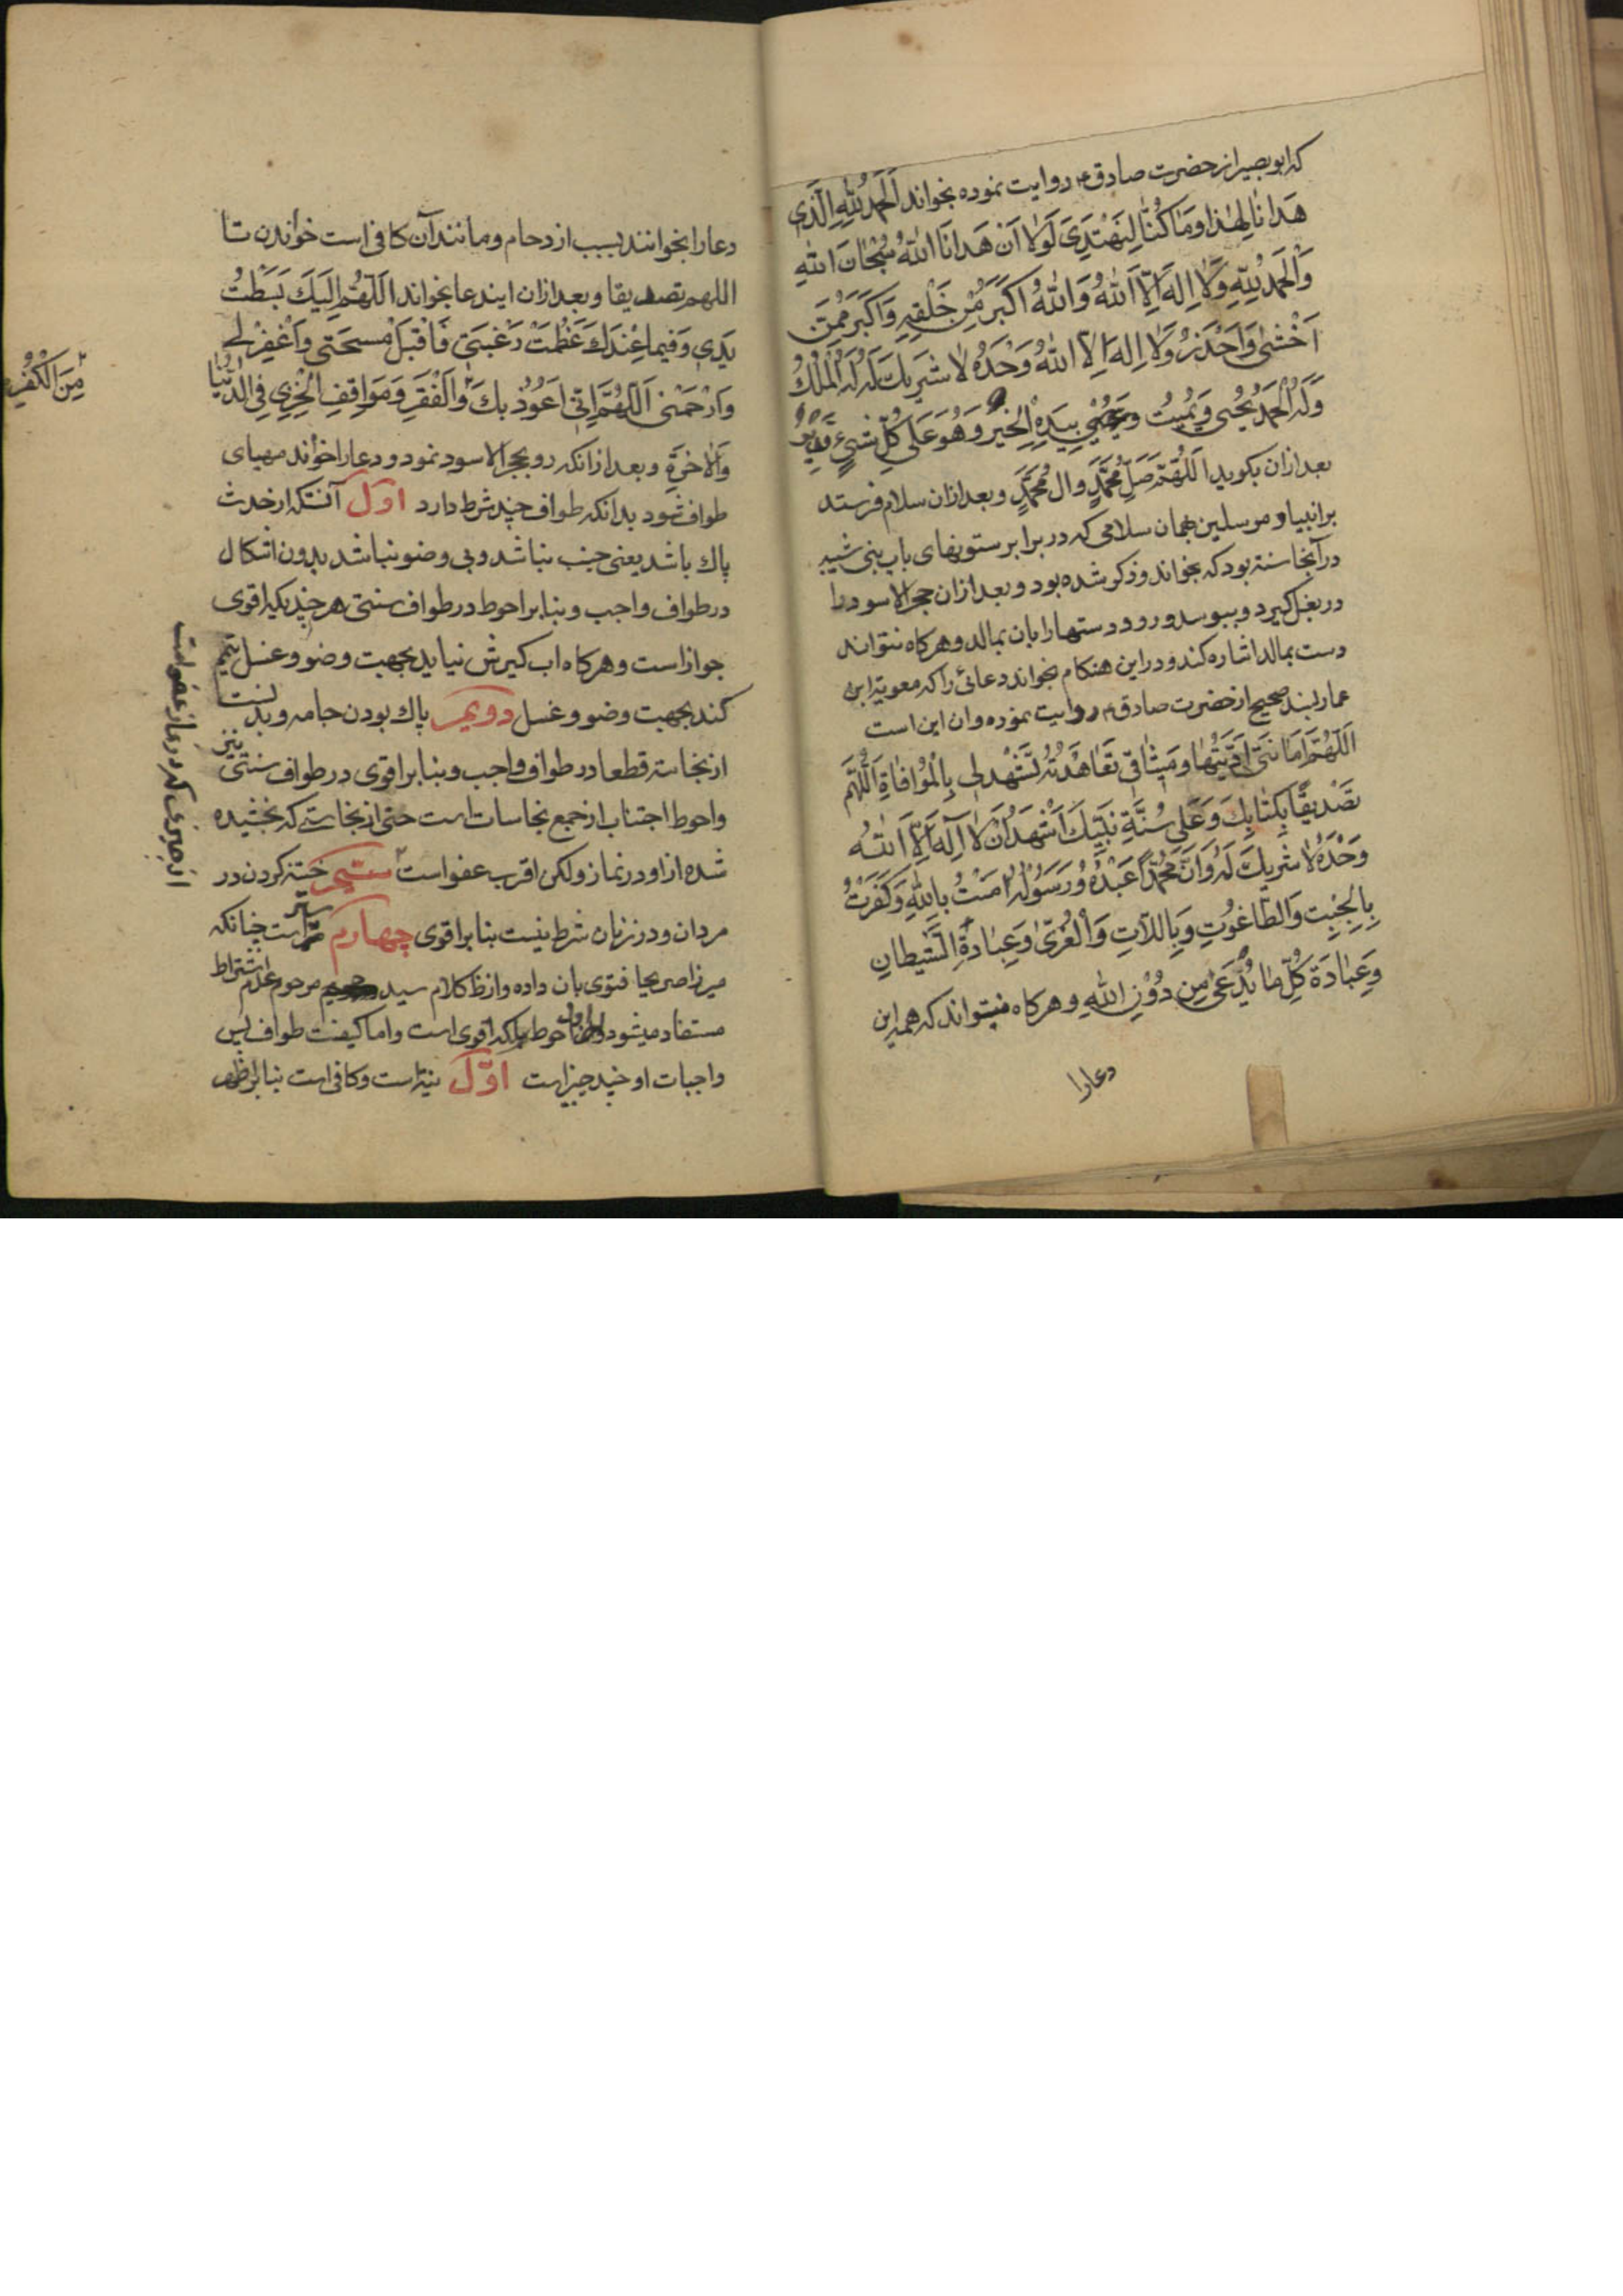 که ابوبصیر از حضرت صادق ع روایت نموده بخواند اَلْحَمْدُ لِلّٰهِ الَّذی
هَدانٰا لِهٰذا وَمٰا کُنّٰا لِنَهْتَدِیَ لَوْلٰا اَنْ هَدانَا اللّٰهُ سُبْحٰانَ اللّٰهِ
وَالْحَمْدُ لِلّٰهِ وَلٰا اِلهَ اِلَّا اللّٰهُ وَاللّٰهُ اَکْبَرُ مِنْ خَلْقِهِ وَاَکْبَرُ مِمَّنْ
اَخْشیٰ وَاَحْذَرُ وَلٰا اِلهَ اِلَّا اللّٰهُ وَحْدَهُ لٰا شَرِیكَ لَهُ لَهُ الْمُلْكُ
وَلَهُ الْحَمْدُ یُحْیی وَیُمیتُ وَیُحْیی بِیَدِهِ الْخَیْرُ وَهُوَ عَلی کُلِّ شَیْءٍ قَدیرٌ
بعد ازان بکوید اَللّهُمَّ صَلِّ مُحَمَّدٍ وَالِ مُحَمَّدٍ و بعد ازان سلام فرستد
بر انبیا و مرسلین همان سلامی که در برابر ستونهای باب بنی شیبه
در آنجا سنة بود که بخواند و ذکر شده بود و بعد ازان حجرالاسود را
در بغل کیرد و ببوسد و رو و دستها را بان بمالد و هرکاه نتواند
دست بمالد اشاره کند و در این هنکام بخواند دعائی را که معویة ابن
عمار بسند صحیح از حضرت صادق ع روایت نموده و ان این است
اَللّهُمَّ اَمٰانَتی اَدَّیْتُهٰا وَمیثٰاقی تَعٰاهَدْتُهُ لِتَشْهَدَ لی بِالْمُوٰافٰاةِ اَللّهُمَّ
تَصْدیقًا بِکِتٰابِكَ وَعَلی سُنَّةِ نَبِیِّكَ اَشْهَدُ اَنْ لٰا اِلهَ اِلَّا اللّٰهُ
وَحْدَهُ لٰا شَریكَ لَهُ وَاَنَّ مُحَمَّدًا عَبْدُهُ وَرَسُولُهُ امَنْتُ بِاللّٰهِ وَکَفَرْتُ
بِالْجِبْتِ وَالطّٰاغُوتِ وَبِاللّٰاتِ وَالْعُزّیٰ وَعِبٰادَةِ الشَّیْطانِ
وَعِبٰادَةِ کُلِّ مٰا یُدْعیٰ مِنْ دُوْنِ اللّٰهِ و هرکاه نتواند که همه این
دعارا
دعا را بخوانند بسبب ازدحام و مانند آن کافی است خواندن تا
اللهم تصدیقا و بعد ازان ایندعا بخواند اَللّهُمَّ اِلَیْكَ بَسَطْتُ
یَدی وَفیما عِنْدَكَ عَظُمَتْ رَغْبَتی فَاقْبَلْ مسحَتی وَاغْفِرْلی
وَارْحَمْنی اَللّهُمَّ اِنّی اَعُوذُ بِكَ وَالْفَقْرِ وَمَوٰاقِفِ الْخِزْیِ فِی الدُّنْیٰا
مِنَ الْکُفْرِ
وَالْاخِرَةِ و بعد ازانکه رو بحجرالاسود نمود و دعا را خواند مهیای
طواف شود بدانکه طواف چند شرط دارد اول آنستکه از حدث
پاك باشد یعنی جنب نباشد و بی وضو نباشد بدون اشکال
در طواف واجب و بنابر احوط در طواف سنتی هرچندیکه اقوی
جواز است و هرکاه اب کیرش نیاید بجهت وضو و غسل تیمم
کند بجهت وضو و غسل دویم پاك بودن جامه و بدنست
از نجاسة قطعا در طواف واجب و بنابر اقوی در طواف سنتی نیز
و احوط اجتناب از جمیع نجاسات است حتی از نجاستی که بخشیده
شده از او در نماز ولکن اقرب عفو است سیم ختنه کردن در
انچیزی که در نماز عفو است
مردان و در زنان شرط نیست بنابر اقوی چهارم ستر است چنانکه
میرزا صریحا فتوی بان داده و از ظ کلام سید مرحوم عدم اشتراط
مستفاد میشود و اول احوط بلکه اقوی است و اما کیفیت طواف پس
واجبات او چند چیز است اوّل نیة است و کافی است بنابر اظهر